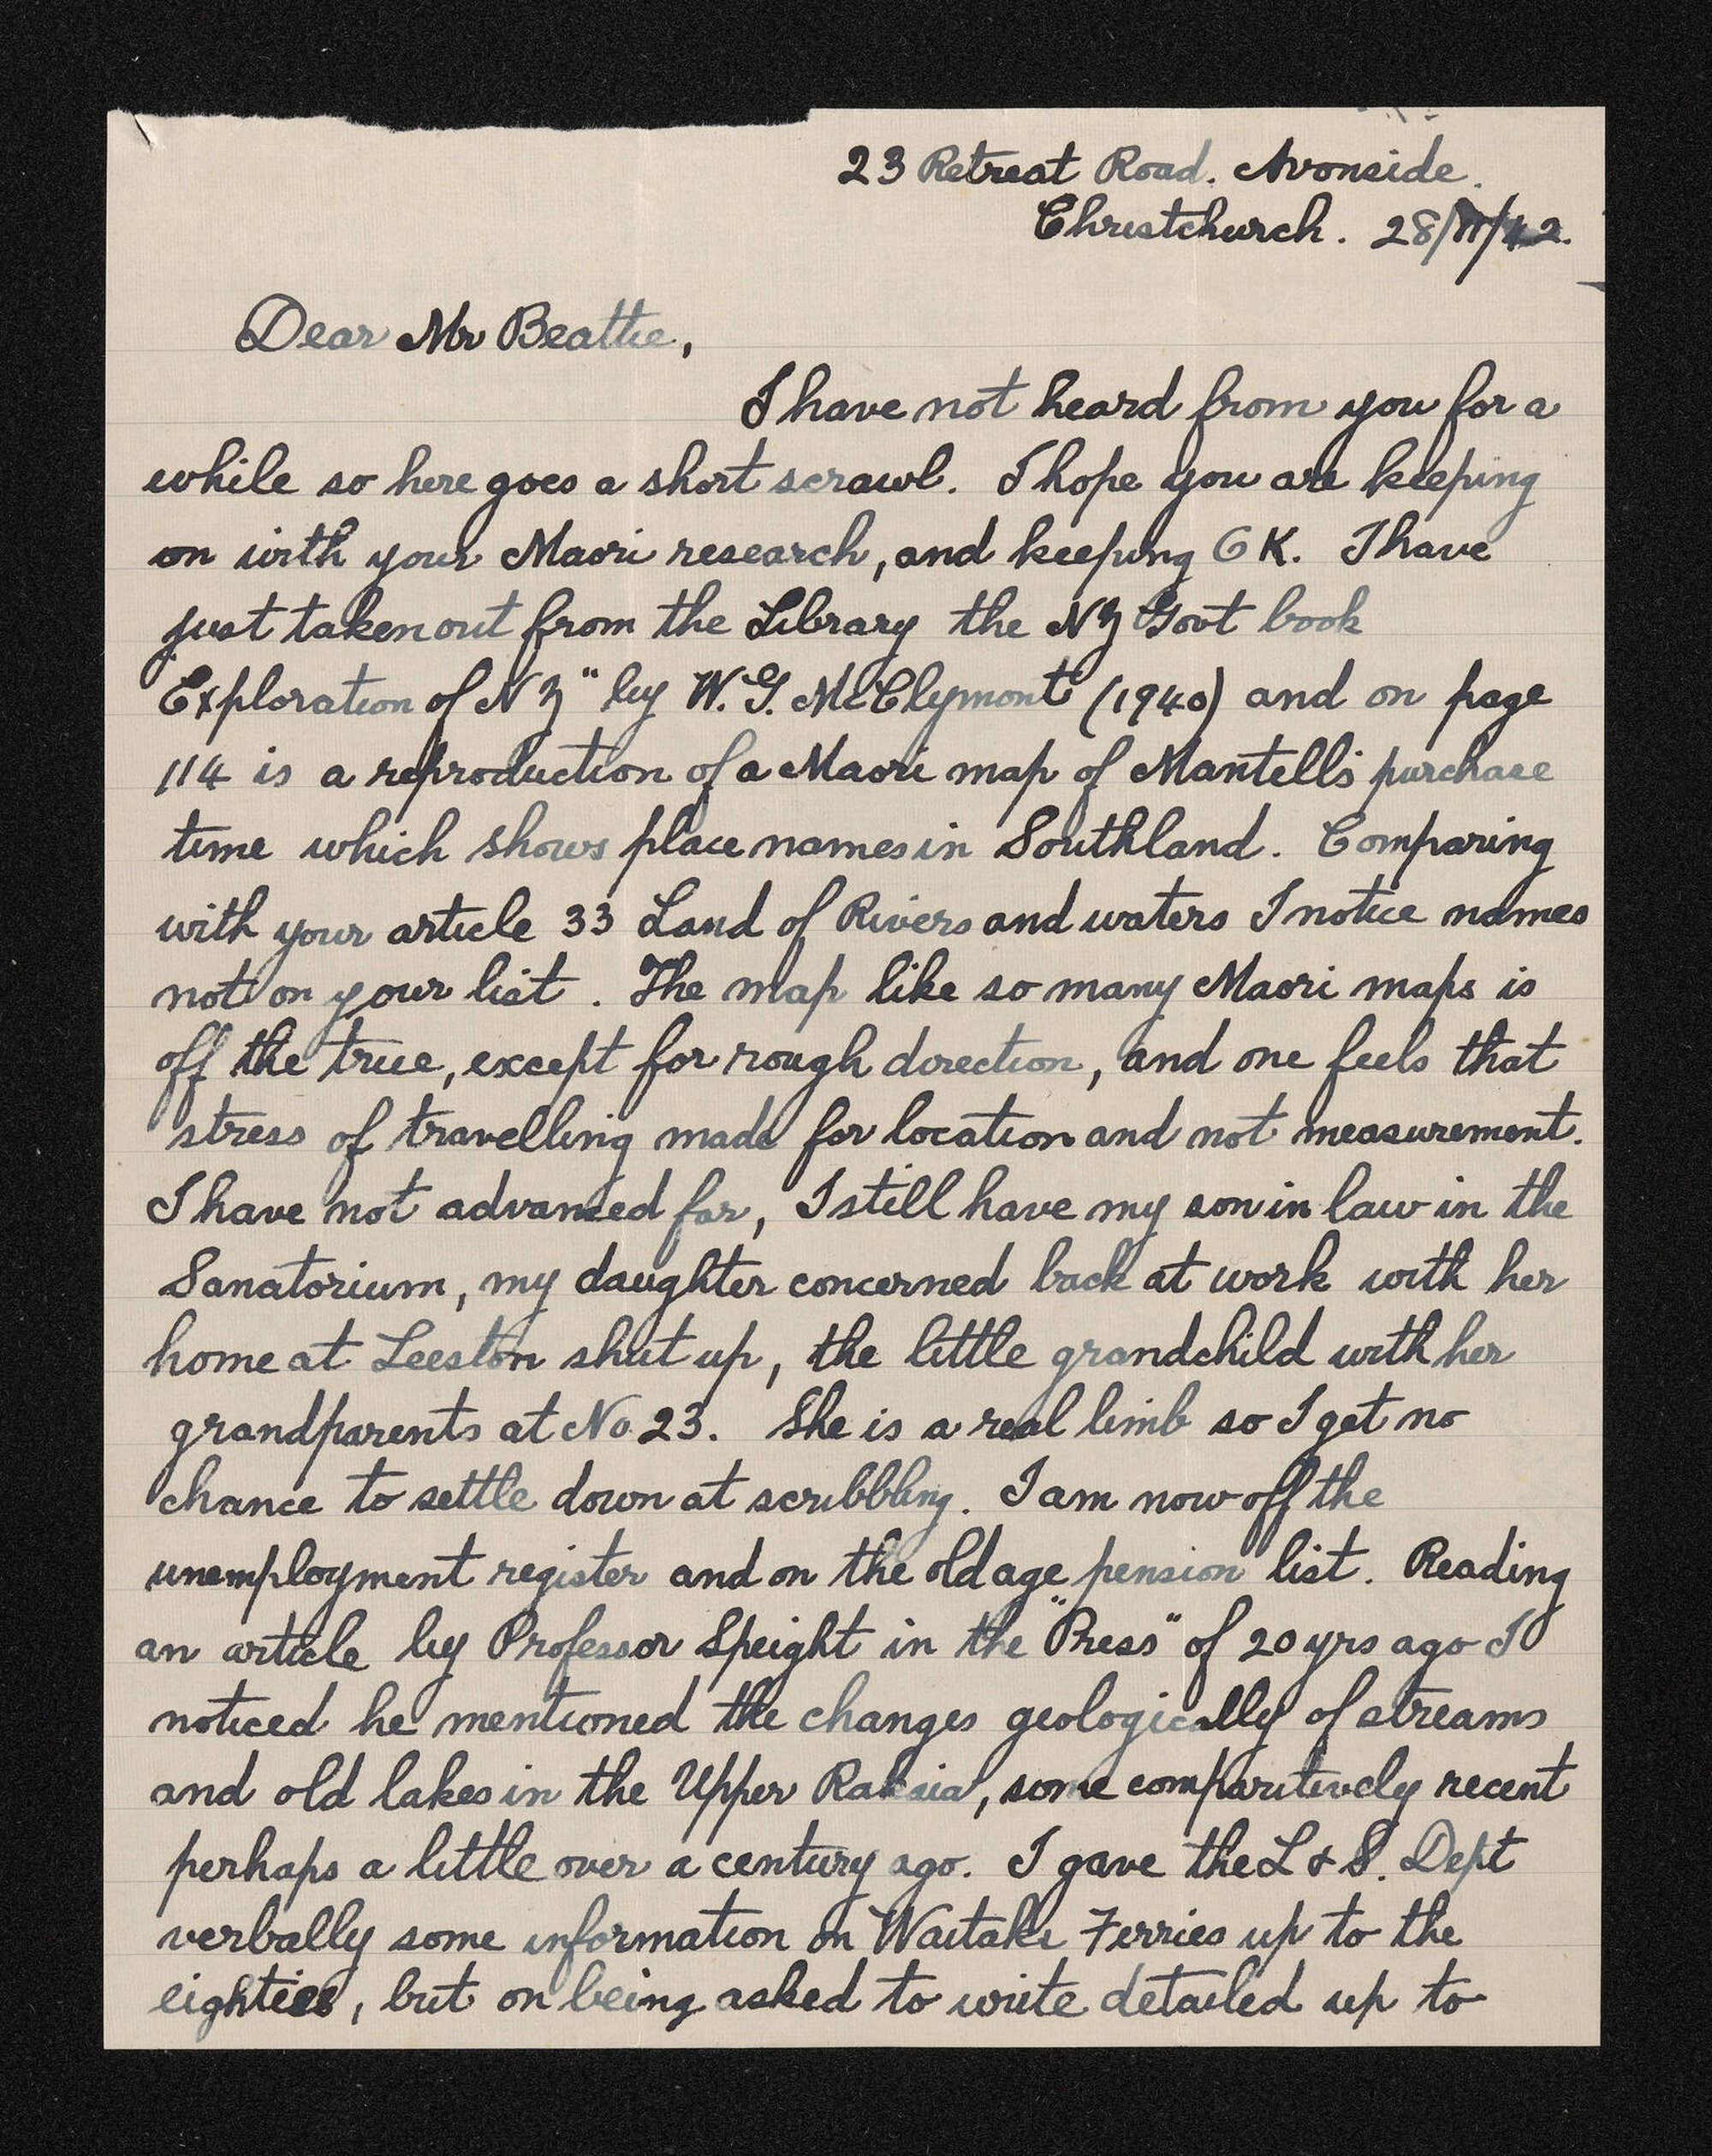 23 Retreat Road. Avonside.
Christchurch. 28/11/42.
Dear Mr Beattie,
I have not heard from you for a
while so here goes a short scrawl. I hope you are keeping
on with your Maori research, and keeping OK. I have
just taken out from the Library the NZ Govt book
Exploration of NZ" by W. G. McClymont (1940) and on page
114 is a reproduction of a Maori map of Mantells purchase
time which shows place names in Southland. Comparing
with your article 33 Land of Rivers and waters I notice names
not on your list. The map like so many Maori maps is
off the true, except for rough direction, and one feels that
stress of travelling made for location and not measurement.
I have not advanced far, I still have my son in law in the
Sanatorium, my daughter concerned back at work with her
home at Leeston shut up, the little grandchild with her
grandparents at No 23. She is a real limb so I get no
chance to settle down at scribbling. I am now off the
unemployment register and on the old age pension list. Reading
an article by Professor Speight in the "Press" of 20 yrs ago I
noticed he mentioned the changes geologically of streams
and old lakes in the Upper Rakaia, some comparitively recent
perhaps a little over a century ago. I gave the L & S. Dept
verbally some information on Waitaki Ferries up to the
eighties, but on being asked to write detailed up to